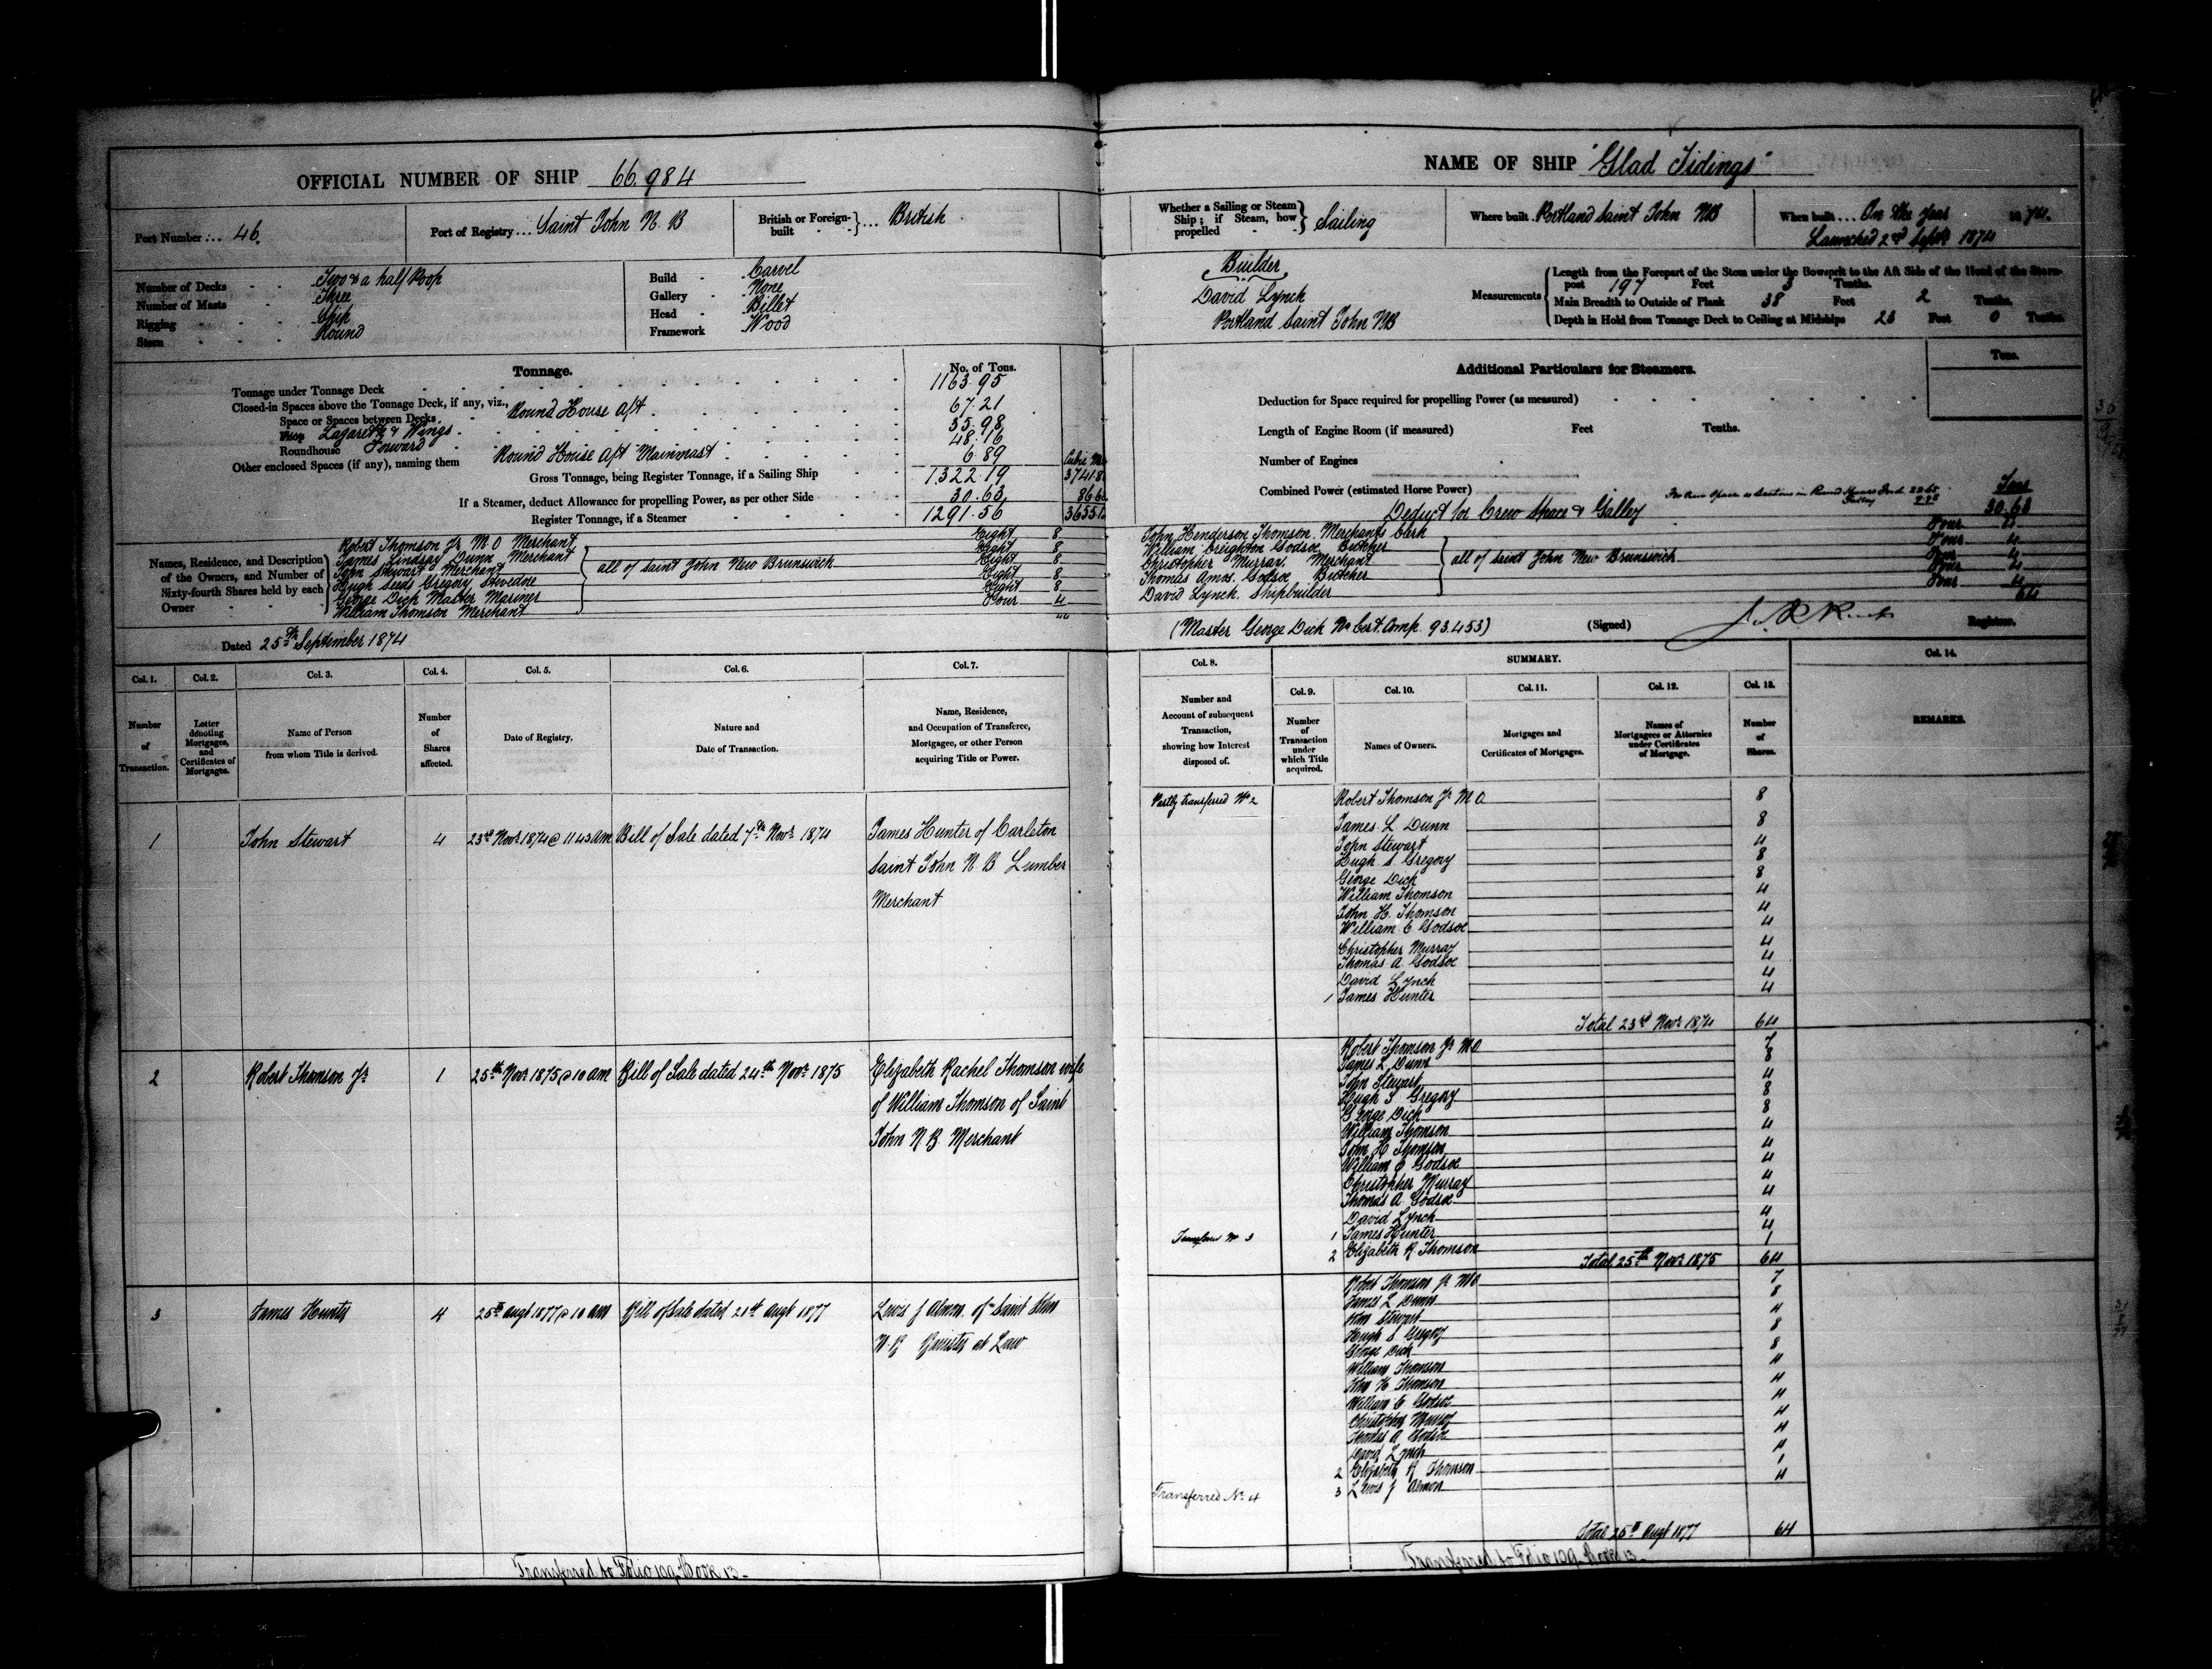 OFFICIAL NUMBER OF SHIP 66.984
Port Number ... 46.
Port of Registry ... Saint John N. B
British or Foreign-built ... British
Number of Decks - Two & a half Poop
Number of Masts - Three
Rigging - Ship
Stern - Round
Build - Carvel
Gallery - None
Head - Billet
Framework Wood
Tonnage.
No. of Tons.
Tonnage under Tonnage Deck 1163.95
Closed-in Spaces above the Tonnage Deck, if any, viz.,
Space or Spaces between Decks Round House Aft 67.21
Lazarette & Wings 35.98
Roundhouse Forward 48.16
Other enclosed Spaces (if any), naming them Round House Aft Mainmast 6.89
Cubic M
Gross Tonnage, being Register Tonnage, if a Sailing Ship 1322.19 3741.8
If a Steamer, deduct Allowance for propelling Power, as per other Side 30.63 86.6
Register Tonnage, if a Steamer 1291.56 3655.1
Names, Residence, and Description of the Owners, and Number of Sixty-fourth Shares held by each Owner
Robert Thomson Jr M O Merchant Eight 8
James Lindsay Dunn Merchant Eight 8
John Stewart Merchant Eight 8
Hugh Seeds Gregory Stevedore Eight 8
George Dick Master Mariner Eight 8
William Thomson Merchant Four 4
all of Saint John New Brunswick
44
Dated 25th September 1874
Col. 1. Col. 2. Col. 3. Col. 4. Col. 5. Col. 6. Col. 7.
Number of Transaction.
Letter denoting Mortgages, and Certificates of Mortgages.
Name of Person from whom Title is derived.
Number of Shares affected.
Date of Registry.
Nature and Date of Transaction.
Name, Residence, and Occupation of Transferee, Mortgagee, or other Person acquiring Title or Power.
1 John Stewart 4 23rd Novr 1874 @ 11 43 am Bill of Sale dated 7th Novr 1874 James Hunter of Carleton
Saint John N B Lumber
Merchant
2 Robert Thomson Jr 1 25th Novr 1875 @ 10 am Bill of Sale dated 24th Novr 1875 Elizabeth Rachel Thomson wife
of William Thomson of Saint
John N B Merchant
3 James Hunter 4 25th augt 1877 @ 10 am Bill of Sale dated 21st augt 1877 Lewis J Almon of Saint John
N B Barrister at Law
Transferred to Folio 109 Book 13
NAME OF SHIP "Glad Tidings"
Whether a Sailing or Steam Ship; if Steam, how propelled Sailing
Where built Portland Saint John NB
When built ... On the year 1874.
Launched 2nd Septr 1874
Builder
David Lynch
Portland Saint John NB
Measurements
Length from the Forepart of the Stem under the Bowsprit to the Aft Side of the Head of the Stern-
post 197 Feet 3 Tenths.
Main Breadth to Outside of Plank 38 Feet 2 Tenths.
Depth in Hold from Tonnage Deck to Ceiling at Midships 23 Feet 0 Tenths.
Additional Particulars for Steamers.
Tons.
Deduction for Space required for propelling Power (as measured)
Length of Engine Room (if measured) Feet Tenths.
Number of Engines
Combined Power (estimated Horse Power)
Tons
Deduct for Crew Space & Galley 30.63
John Henderson Thomson. Merchants Clerk Four 4
William Creighton Godsoe Butcher Four 4
Christopher Murray. Merchant Four 4
Thomas Amos. Godsoe Butcher Four 4
David Lynch. Shipbuilder Four 4
all of Saint John New Brunswick
64
(Master George Dick No Cert. Comp. 93.453)
(Signed)
Registrar.
Col. 8. SUMMARY. Col. 14.
Col. 9. Col. 10. Col. 11. Col. 12. Col. 13.
Number and Account of subsequent Transaction, showing how Interest disposed of.
Number of Transaction under which Title acquired.
Names of Owners.
Mortgages and Certificates of Mortgages.
Names of Mortgagees or Attornies under Certificates of Mortgage.
Number of Shares.
REMARKS.
Partly transferred No 2 Robert Thomson Jr M O 8
James L Dunn 8
John Stewart 4
Hugh S Gregory 8
George Dick 8
William Thomson 4
John H. Thomson 4
William C Godsoe 4
Christopher Murray 4
Thomas A. Godsoe 4
David Lynch 4
1 James Hunter 4
Total 23rd Novr 1874 64
Robert Thomson Jr M O 7
James L Dunn 8
John Stewart 4
Hugh S Gregory 8
George Dick 8
William Thomson 4
John H Thomson 4
William C Godsoe 4
Christopher Murray 4
Thomas A. Godsoe 4
David Lynch 4
Transfer No 3 1 James Hunter 4
2 Elizabeth R Thomson 1
Total 25th Novr 1875 64
Robert Thomson Jr M O 7
James L Dunn 8
John Stewart 4
Hugh S Gregory 8
George Dick 8
William Thomson 4
John H Thomson 4
William C Godsoe 4
Christopher Murray 4
Thomas A Godsoe 4
David Lynch 4
2 Elizabeth R Thomson 1
Transferred No. 4 3 Lewis J Almon 4
Total 25th Augt 1877 64
Transferred to Folio 109 Book 13